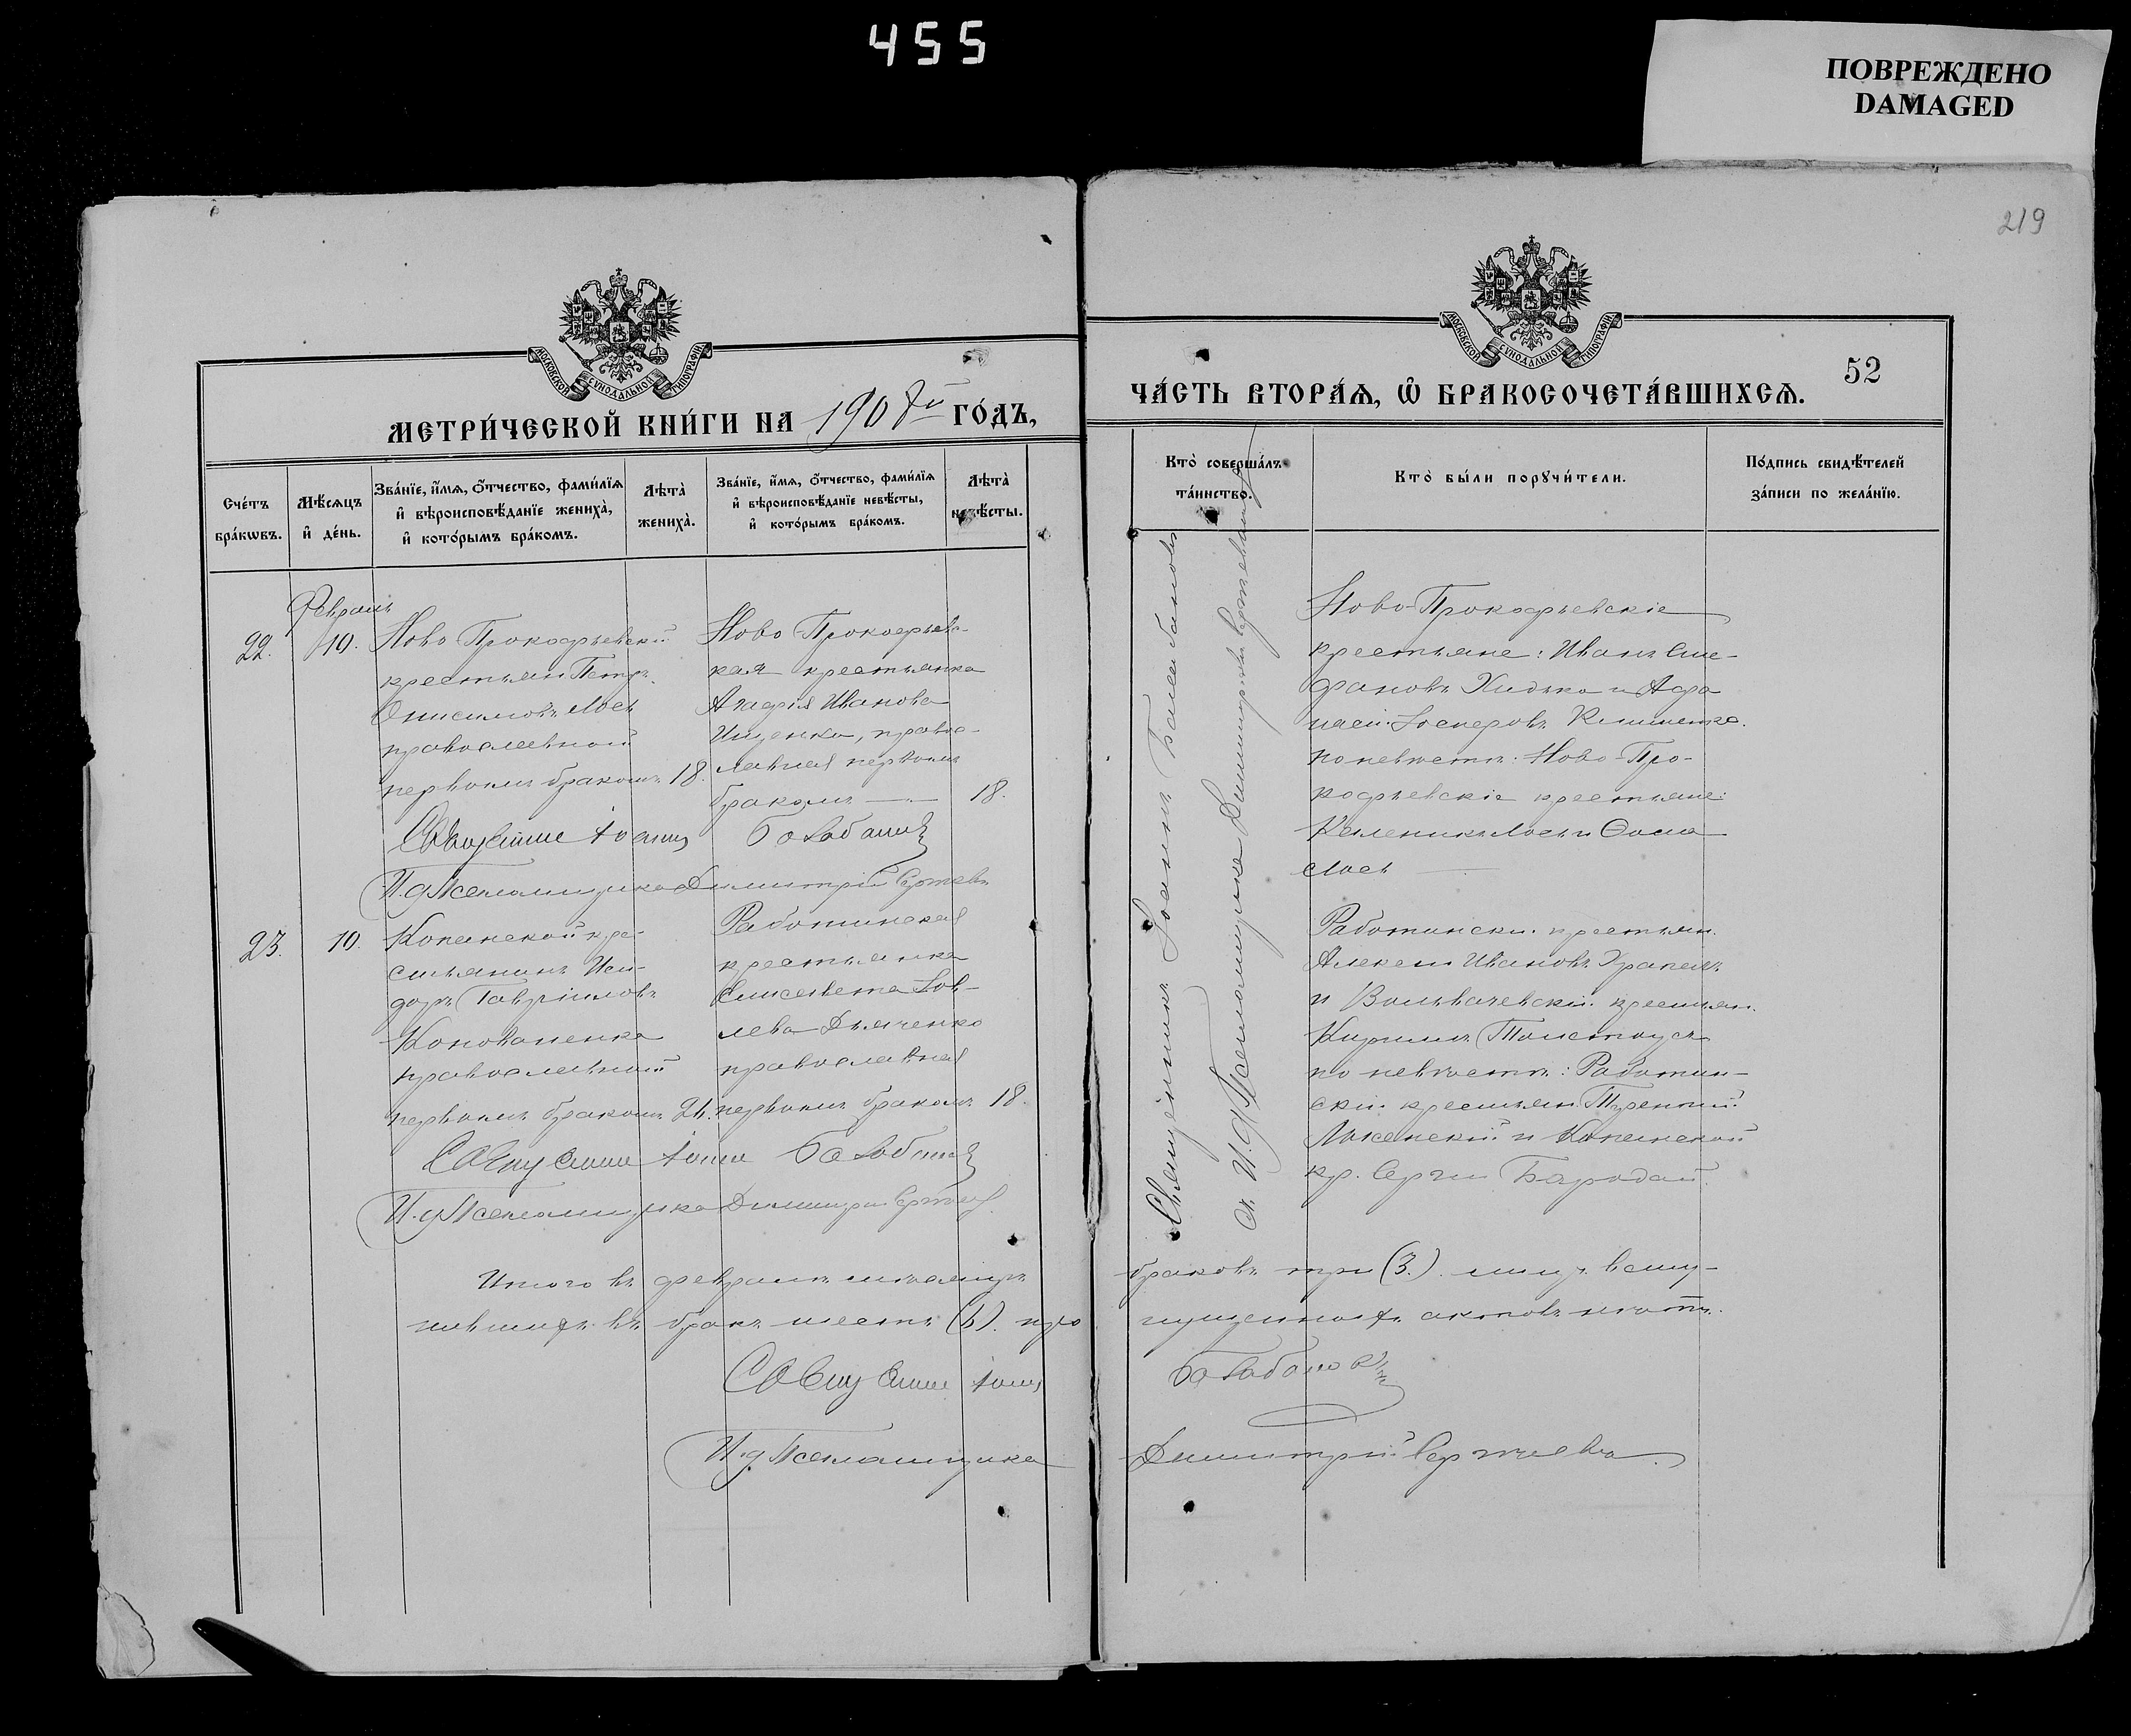 455
ПОВРЕЖДЕНО
DAMAGED
219
МОСКОВСКОЙ СѴНОДАЛЬНОЙ ТИПОГРАФІИ
МЕТРИ́ЧЕСКОЙ КНИ́ГИ НА 1908й ГО́ДЪ,
Сче́тъ бра́кѡвъ.
Мѣ́сяцъ и҆ де́нь.
Зва́нїе, и҆́мѧ, ѻ҆́тчество, фами́лїѧ и҆ вѣроисповѣ́данїе жениха̀, и҆ кото́рымъ бра́комъ.
Лѣта̀ жениха̀.
Зва́нїе, и҆́мѧ, ѻ҆́тчество, фами́лїѧ и҆ вѣроисповѣ́данїе невѣ́сты, и҆ кото́рымъ бра́комъ.
Лѣта̀ невѣ́сты.
Февраль
22.
10.
Ново Прокофьевскій
крестьян. Петръ
Онисимовъ Лось
православный
первымъ бракомъ
18.
Ново-Прокофьевс-
кая крестьянка
Агафія Иванова
Ищенко, правос-
лавная первымъ
бракомъ
18.
Священникъ Іоаннъ Балабановъ
И. д. Псаломщика Димитрій Сергеевъ
23.
10.
Копанской кре-
стьянинъ Иси-
доръ Гавріиловъ
Коноваленко
православный
первымъ бракомъ
24.
Работинская
крестьянка
Елисавета Іов-
лева Дьяченко
православная
первымъ бракомъ
18.
Священникъ Іоаннъ Балабановъ
И. д. Псаломщика Димитрій Сергеевъ
Итого въ февралѣ мѣсяцѣ
пившихъ въ бракъ шесть (6). про
Священникъ Іоаннъ
И. д. Псаломщика
МОСКОВСКОЙ СѴНОДАЛЬНОЙ ТИПОГРАФІИ
52
ЧА́СТЬ ВТОРА́Ѧ, Ѡ҆ БРАКОСОЧЕТА́ВШИХСѦ.
Кто̀ соверша́лъ та́инство.
Кто̀ бы́ли порꙋчи́тели.
По́дпись свидѣ́телей за́писи по жела́нїю.
Священникъ Іоаннъ Балабановъ
съ И. д. Псаломщика Димитріемъ Сергеевымъ
Ново-Прокофьевскіе
крестьяне: Иванъ Сте-
фановъ Хидько и Афа
насій Іосифовъ Клименко.
по невѣстѣ: Ново-Про-
кофьевскіе крестьяне:
Каленикъ Лось и Ѳома
Лось
Работинскій крестьян.
Алексѣй Ивановъ
и крестьян.
Кириллъ Толстоусъ
по невѣстѣ: Работин-
скій крестьян. Терентій
и Копанской
кр. Сергій Бородай.
браковъ три (3.). лицъ всту-
пущенныхъ актовъ нѣтъ.
Балабановъ
Димитрій Сергѣевъ.